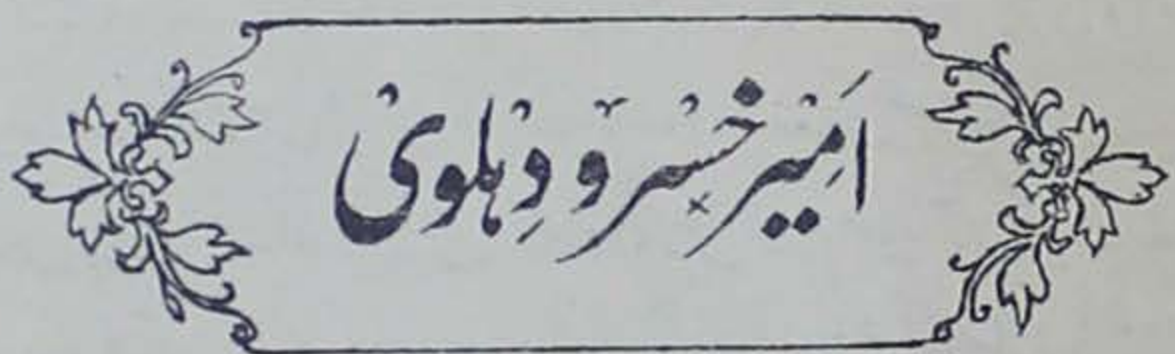 امیر خسرو دہلوی